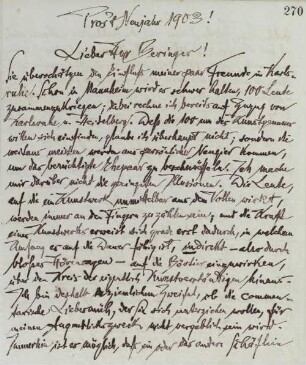 270
Pros't Neujahr 1903!
Lieber Herr Beringer!
Sie überschätzen den Einfluss meiner paar Freunde in Karls-
ruhe. Schon in Mannheim wird es schwer halten, 100 Leute
zusammenzukriegen; dabei rechne ich bereits auf Zuzug von
Karlsruhe u. Heidelberg. Dass die 100 um des Kunstgenusses
willen sich einfinden, glaube ich überhaupt nicht; sondern die
weitaus meisten werden aus persönlicher Neugier kommen,
um das berüchtigte Ehepaar zu beschnüffeln. Ich mache
mir darüber nicht die geringsten Illusionen. Die Leute,
auf die ein Kunstwerk unmittelbar aus dem Vollen wirkt,
werden immer an den Fingern zu zählen sein; und die Kraft
eines Kunstwerks erweist sich grade erst dadurch, in welchem
Umfang es auf die Dauer fähig ist, indirekt – also durch
blosses Hörensagen – auf die Geister einzuwirken,
über den Kreis der eigentlich Kunstverständigen hinaus.
Ich bin deshalb ziemlich Zweifel, ob die commen-
tarische Liebesmüh, der Sie sich unterziehn wollen, für
meinen Augenblickszweck nicht vergeblich sein wird.
Immerhin ist es möglich, dass ein oder das andere Schäflein